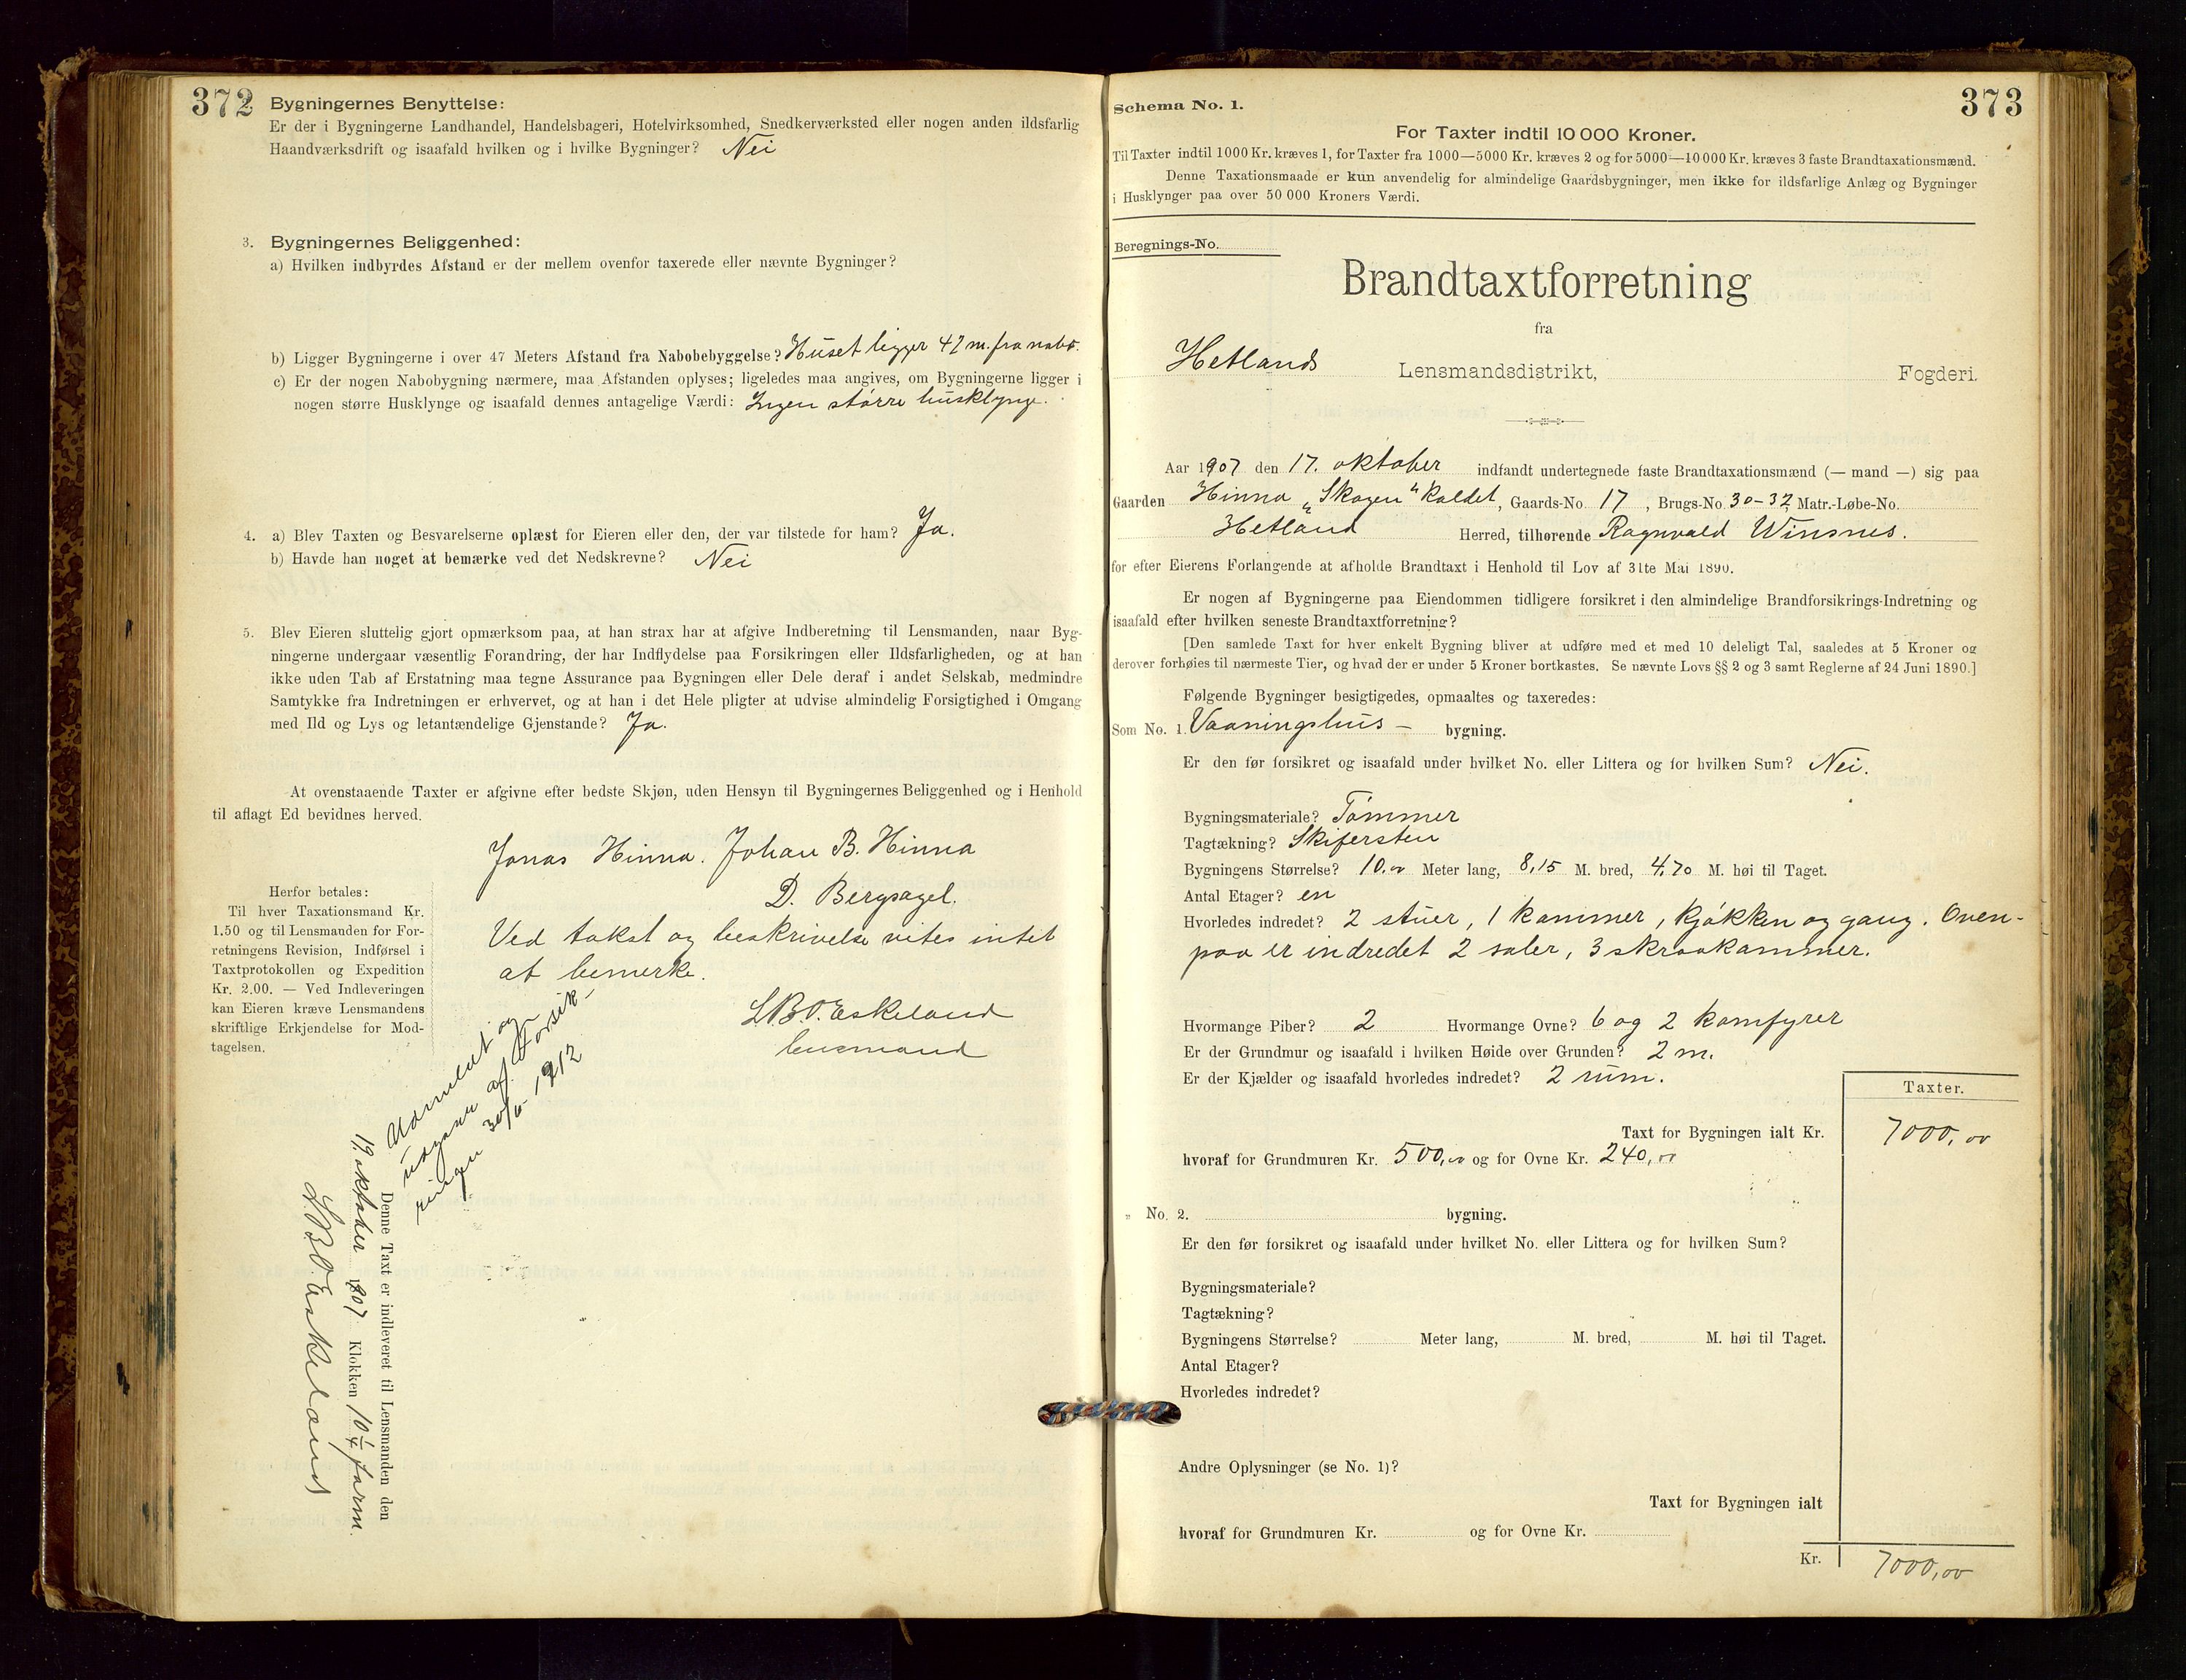 372
Bygningernes Benyttelse:
Er der i Bygningerne Landhandel, Handelsbageri, Hotelvirksomhed, Snedkerværksted eller nogen anden ildsfarlig
Haandværksdrift og isaafald hvilken og i hvilke Bygninger? Nei
3. Bygningernes Beliggenhed:
a) Hvilken indbyrdes Afstand er der mellem ovenfor taxerede eller nævnte Bygninger?
b) Ligger Bygningerne i over 47 Meters Afstand fra Nabobebyggelse? Huset ligger 47 m. fra nabo.
c) Er der nogen Nabobygning nærmere, maa Afstanden oplyses; ligeledes maa angives, om Bygningerne ligger i
nogen større Husklynge og isaafald dennes antagelige Værdi: Ingen større husklynge.
4. a) Blev Taxten og Besvarelserne oplæst for Eieren eller den, der var tilstede for ham? Ja.
b) Havde han noget at bemærke ved det Nedskrevne? Nei
5. Blev Eieren sluttelig gjort opmærksom paa, at han strax har at afgive Indberetning til Lensmanden, naar Byg-
ningerne undergaar væsentlig Forandring, der har Indflydelse paa Forsikringen eller Ildsfarligheden, og at han
ikke uden Tab af Erstatning maa tegne Assurance paa Bygningen eller Dele deraf i andet Selskab, medmindre
Samtykke fra Indretningen er erhvervet, og at han i det Hele pligter at udvise almindelig Forsigtighed i Omgang
med Ild og Lys og letantændelige Gjenstande? Ja.
At ovenstaaende Taxter er afgivne efter bedste Skjøn, uden Hensyn til Bygningernes Beliggenhed og i Henhold
til aflagt Ed bevidnes herved.
Jonas Hinna. Johan B. Hinna
D. Bergsagel.
Ved takst og beskrivelse vites intet
at bemerke.
L.B.O. Eskeland
lensmand
Herfor betales:
Til hver Taxationsmand Kr.
1.50 og til Lensmanden for For-
retningens Revision, Indførsel i
Taxtprotokollen og Expedition
Kr. 2.00. — Ved Indleveringen
kan Eieren kræve Lensmandens
skriftlige Erkjendelse for Mod-
tagelsen.
Udmeldt og
udgaar af Forsik-
ringen 30/6 1912
Denne Taxt er indleveret til Lensmanden den
19 oktober 1907 Klokken 10 1/4 form.
L.B.O Eskeland
373
Schema No. 1.
For Taxter indtil 10 000 Kroner.
Til Taxter indtil 1000 Kr. kræves 1, for Taxter fra 1000—5000 Kr. kræves 2 og for 5000—10 000 Kr. kræves 3 faste Brandtaxationsmænd.
Denne Taxationsmaade er kun anvendelig for almindelige Gaardsbygninger, men ikke for ildsfarlige Anlæg og Bygninger
i Husklynger paa over 50 000 Kroners Værdi.
Beregnings-No.
Brandtaxtforretning
fra
Hetlands Lensmandsdistrikt, Fogderi.
Aar 1907 den 17. oktober indfandt undertegnede faste Brandtaxationsmænd (— mand —) sig paa
Gaarden Hinna „Skogen“ kaldet, Gaards-No. 17, Brugs-No. 30-32 Matr.-Løbe-No.
Hetland Herred, tilhørende Ragnvald Winsnes.
for efter Eierens Forlangende at afholde Brandtaxt i Henhold til Lov af 31te Mai 1890.
Er nogen af Bygningerne paa Eiendommen tidligere forsikret i den almindelige Brandforsikrings-Indretning og
isaafald efter hvilken seneste Brandtaxtforretning?
[Den samlede Taxt for hver enkelt Bygning bliver at udføre med et med 10 deleligt Tal, saaledes at 5 Kroner og
derover forhøies til nærmeste Tier, og hvad der er under 5 Kroner bortkastes. Se nævnte Lovs §§ 2 og 3 samt Reglerne af 24 Juni 1890.]
Følgende Bygninger besigtigedes, opmaaltes og taxeredes:
Som No. 1. Vaaningshus - bygning.
Er den før forsikret og isaafald under hvilket No. eller Littera og for hvilken Sum? Nei.
Bygningsmateriale? Tømmer
Tagtækning? Skifersten
Bygningens Størrelse? 10,00 Meter lang, 8,15 M. bred, 4,70 M. høi til Taget.
Antal Etager? en
Hvorledes indredet? 2 stuer, 1 kammer, kjøkken og gang. Oven-
paa er indredet 2 saler, 3 skraakammer.
Hvormange Piber? 2 Hvormange Ovne? 6 og 2 komfyrer
Er der Grundmur og isaafald i hvilken Høide over Grunden? 2 m.
Er der Kjælder og isaafald hvorledes indredet? 2 rum.
Taxter.
Taxt for Bygningen ialt Kr. 7000,00
hvoraf for Grundmuren Kr. 500,00 og for Ovne Kr. 240,00
„ No. 2. bygning.
Er den før forsikret og isaafald under hvilket No. eller Littera og for hvilken Sum?
Bygningsmateriale?
Tagtækning?
Bygningens Størrelse? Meter lang, M. bred, M. høi til Taget.
Antal Etager?
Hvorledes indredet?
Andre Oplysninger (se No. 1)?
Taxt for Bygningen ialt
hvoraf for Grundmuren Kr. og for Ovne Kr.
Kr. 7000,00